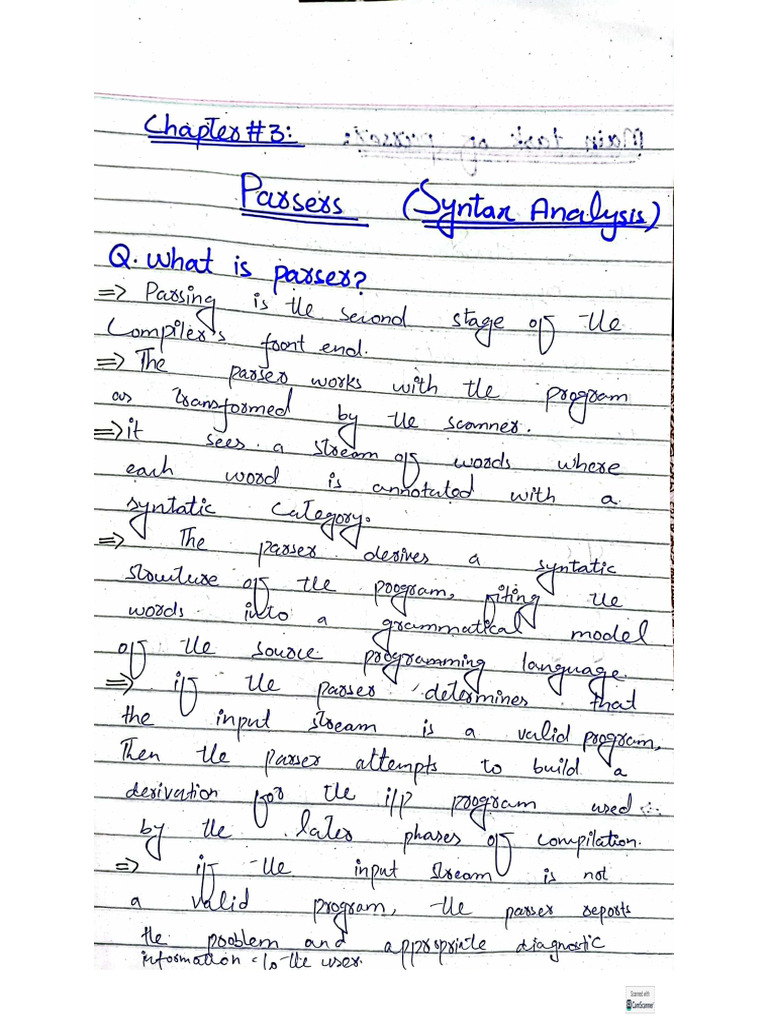 Chapter#3:
Main task of parser:
Parsers (Syntax Analysis)
Q. What is parser?
=> Parsing is the second stage of the
Compiler's front end.
=> The parser works with the program
as transformed by the scanner.
=> it sees a stream of words where
each word is annotated with a
syntatic category.
=> The parser derives a syntatic
structure of the program, fiting the
words into a grammatical model
of the source programming language.
=> if the parser determines that
the input stream is a valid program,
Then the parser attempts to build a
derivation for the i/p program used
by the later phases of compilation.
=> if the input stream is not
a valid program, the parser reports
the problem and appropriate diagnostic
information to the user.
Scanned with
CamScanner